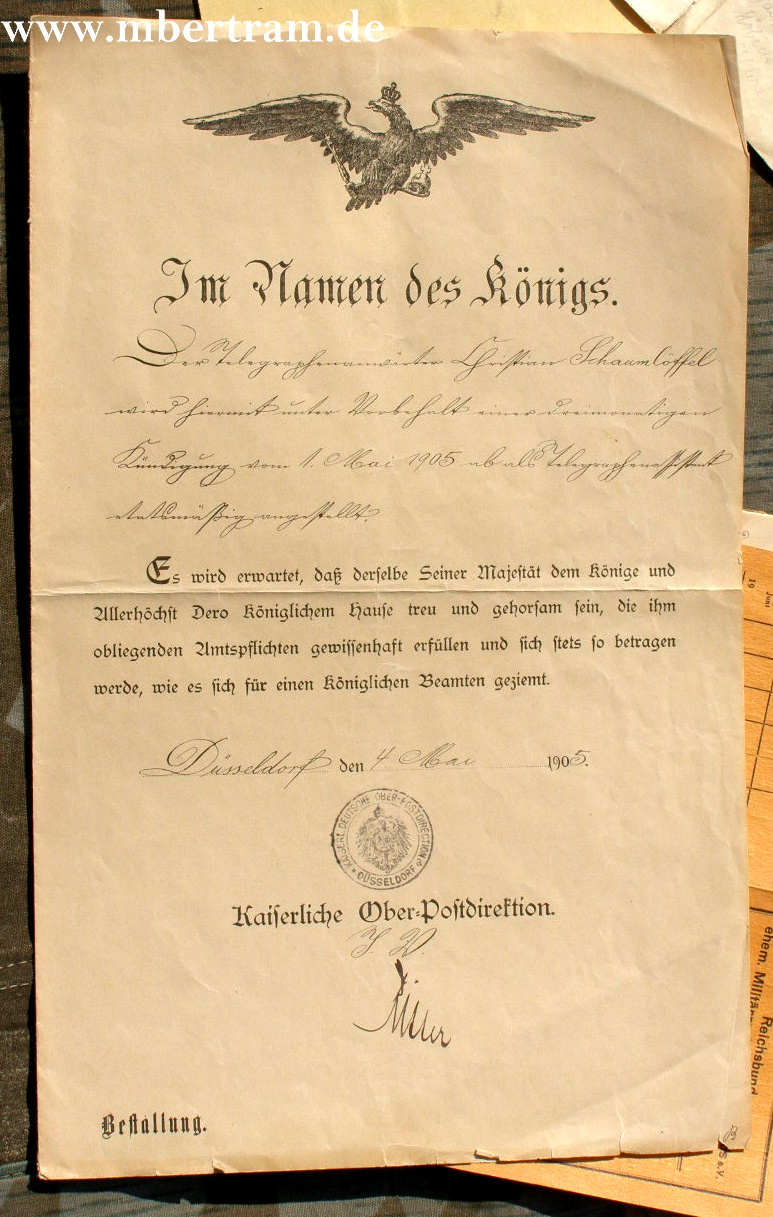 www.mbertram.de
Im Namen des Königs.
Der Telegraphenanwärter Christian Schaumlöffel
wird hiermit unter Vorbehalt einer dreimonatigen
Kündigung vom 1. Mai 1905 ab als Telegraphenassistent
etatsmäßig angestellt.
Es wird erwartet, daß derselbe Seiner Majestät dem Könige und
Allerhöchst Dero Königlichem Hause treu und gehorsam sein, die ihm
obliegenden Amtspflichten gewissenhaft erfüllen und sich stets so betragen
werde, wie es sich für einen Königlichen Beamten geziemt.
Düsseldorf den 4 Mai 1905.
KAISERL. DEUTSCHE OBER-POSTDIRECTION
DÜSSELDORF
Kaiserliche Ober-Postdirektion.
I. V.
Bestallung.
19
Juni
Reichsbund
ehem. Militär
S e.V.